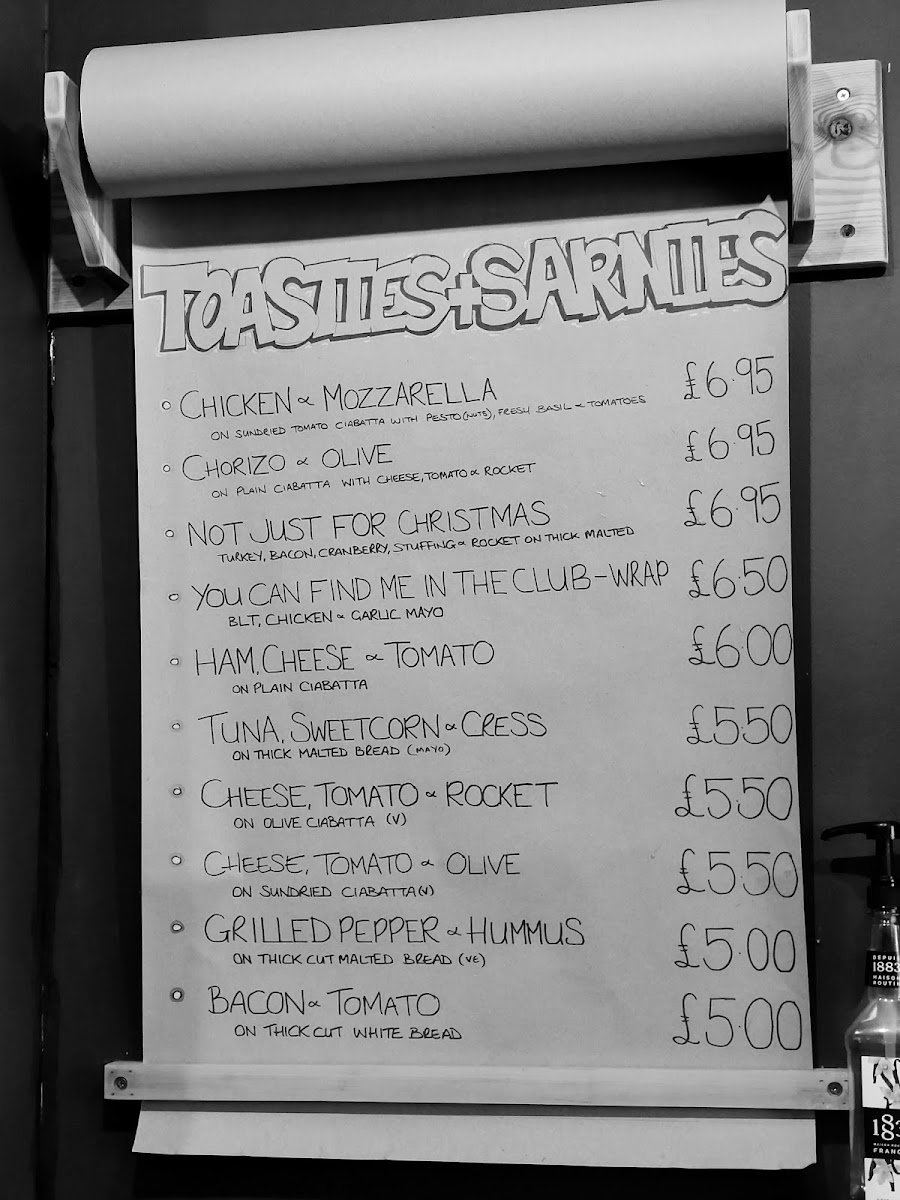 TOASTIES+SARNIES
CHICKEN & MOZZARELLA £6.95
ON SUNDRIED TOMATO CIABATTA WITH PESTO (NUTS), FRESH BASIL & TOMATOES
CHORIZO & OLIVE £6.95
ON PLAIN CIABATTA WITH CHEESE, TOMATO & ROCKET
NOT JUST FOR CHRISTMAS £6.95
TURKEY, BACON, CRANBERRY, STUFFING & ROCKET ON THICK MALTED
YOU CAN FIND ME IN THE CLUB-WRAP £6.50
BLT, CHICKEN & GARLIC MAYO
HAM, CHEESE & TOMATO £6.00
ON PLAIN CIABATTA
TUNA, SWEETCORN & CRESS £5.50
ON THICK MALTED BREAD (MAYO)
CHEESE, TOMATO & ROCKET £5.50
ON OLIVE CIABATTA (V)
CHEESE, TOMATO & OLIVE £5.50
ON SUNDRIED CIABATTA (V)
GRILLED PEPPER & HUMMUS £5.00
ON THICK CUT MALTED BREAD (VE)
BACON & TOMATO £5.00
ON THICK CUT WHITE BREAD
DEPUI
1883
MAISON
ROUTIN
1883
FRANC